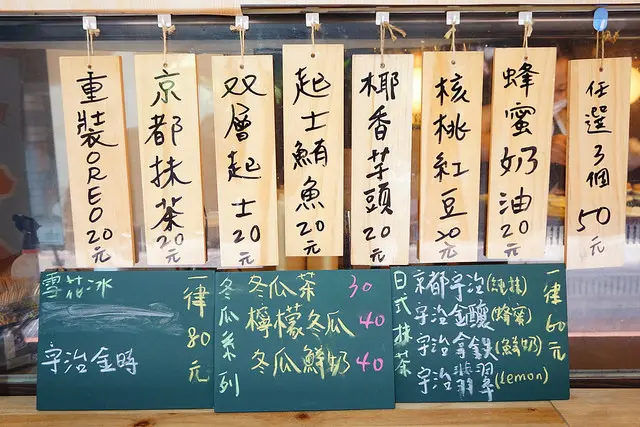 重裝OREO 20元
京都抹茶 20元
双層起士 20元
起士鮪魚 20元
椰香芋頭 20元
核桃紅豆 20元
蜂蜜奶油 20元
任選3個 50元
雪花冰
宇治金時
一律80元
冬瓜系列
冬瓜茶 30
檸檬冬瓜 40
冬瓜鮮奶 40
日式抹茶
京都宇治(純抹)
宇治金釀(蜂蜜)
宇治拿鉄(鮮奶)
宇治翡翠(Lemon)
一律60元